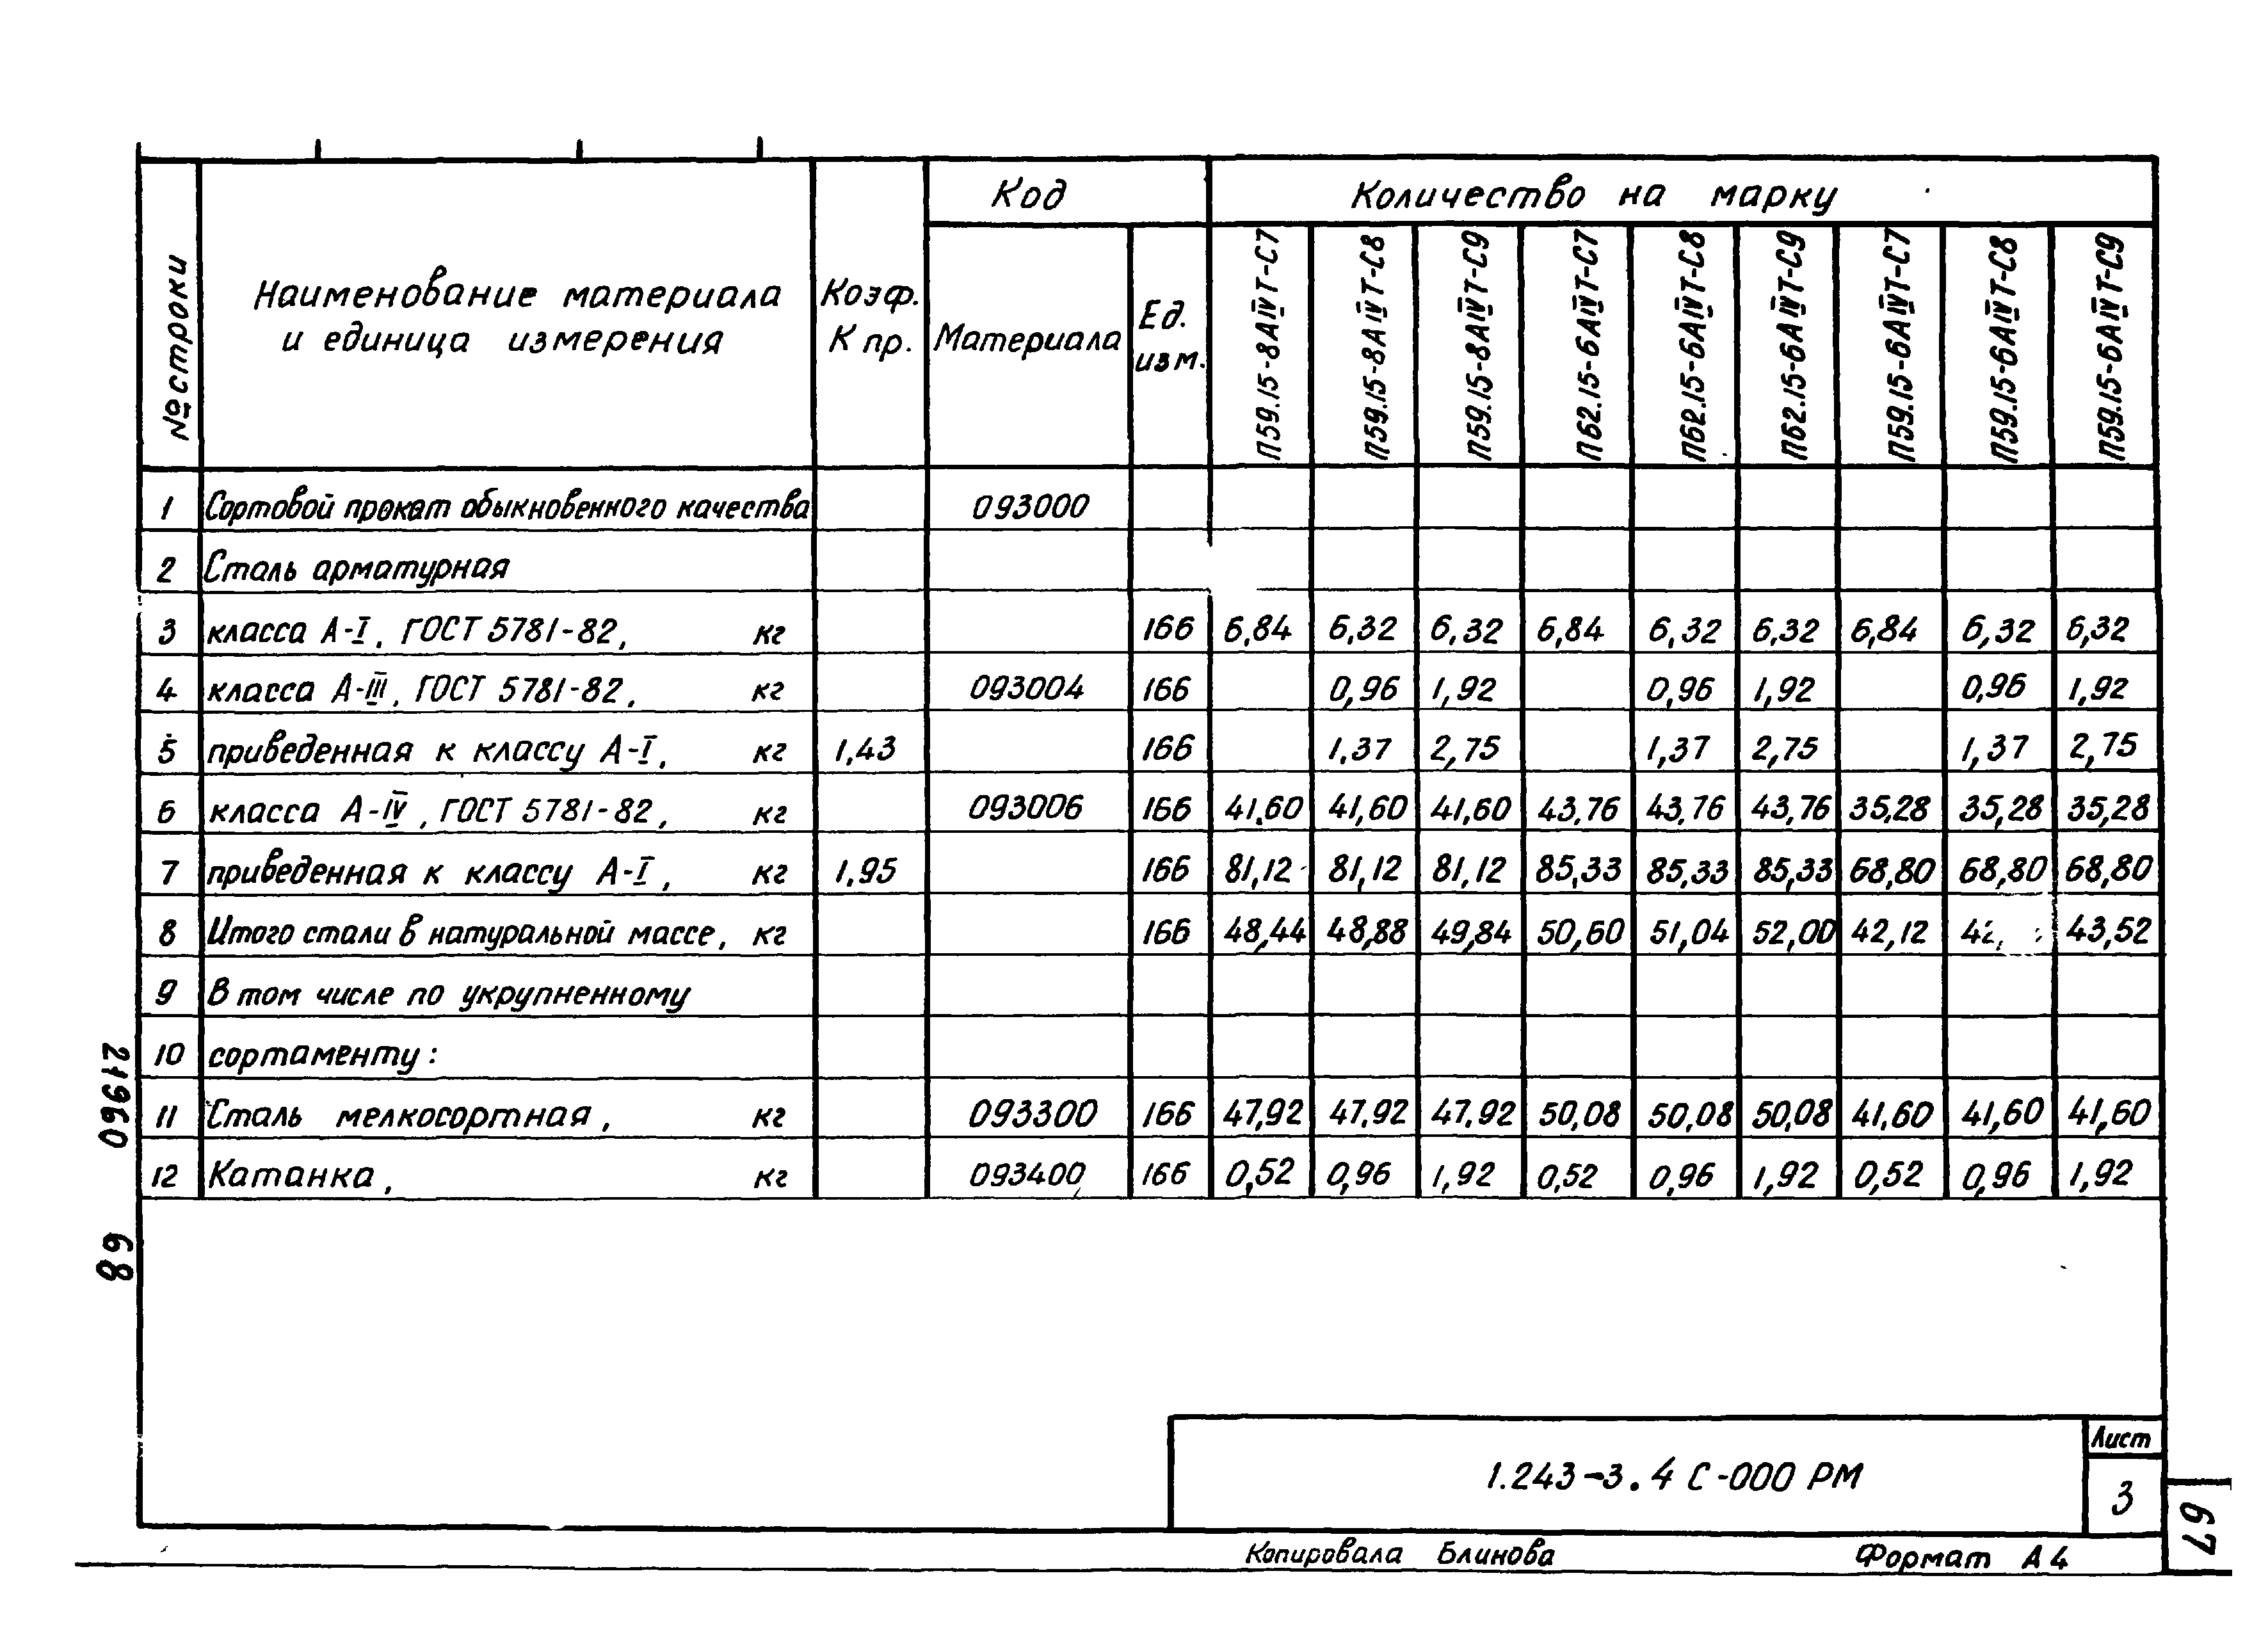 № строки
Наименование материала
и единица измерения
Коэф.
К пр.
Код
Материала
Ед.
изм.
Количество на марку
П59.15-8АIVТ-С7
П59.15-8АIVТ-С8
П59.15-8АIVТ-С9
П62.15-6АIVТ-С7
П62.15-6АIVТ-С8
П62.15-6АIVТ-С9
П59.15-6АIVТ-С7
П59.15-6АIVТ-С8
П59.15-6АIVТ-С9
1 Сортовой прокат обыкновенного качества 093000
2 Сталь арматурная
3 класса А-I, ГОСТ 5781-82, кг 166 6,84 6,32 6,32 6,84 6,32 6,32 6,84 6,32 6,32
4 класса А-III, ГОСТ 5781-82, кг 093004 166 0,96 1,92 0,96 1,92 0,96 1,92
5 приведенная к классу А-I, кг 1,43 166 1,37 2,75 1,37 2,75 1,37 2,75
6 класса А-IV, ГОСТ 5781-82, кг 093006 166 41,60 41,60 41,60 43,76 43,76 43,76 35,28 35,28 35,28
7 приведенная к классу А-I, кг 1,95 166 81,12 81,12 81,12 85,33 85,33 85,33 68,80 68,80 68,80
8 Итого стали в натуральной массе, кг 166 48,44 48,88 49,84 50,60 51,04 52,00 42,12 43,52
9 В том числе по укрупненному
10 сортаменту:
11 Сталь мелкосортная, кг 093300 166 47,92 47,92 47,92 50,08 50,08 50,08 41,60 41,60 41,60
12 Катанка, кг 093400 166 0,52 0,96 1,92 0,52 0,96 1,92 0,52 0,96 1,92
21960
68
1.243-3.4 С-000 РМ
Лист
3
67
Копировала Блинова
Формат А4